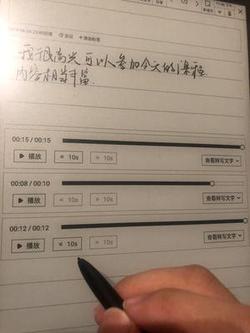 1/2
添加标签
我很高兴可以参加今天的课程
内容相当丰富
00:15 / 00:15
▶ 播放
< 10s
> 10s
查看转写文字
00:08 / 00:10
▶ 播放
< 10s
> 10s
查看转写文字
00:12 / 00:12
▶ 播放
< 10s
> 10s
查看转写文字